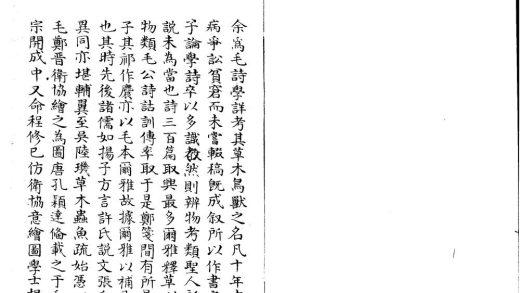 余爲毛詩學詳考其草木鳥獸之名凡十年
病爭訟貧窘而未嘗輟稿旣成叙所以作書
子論學詩卒以多識教然則辨物考類聖人
說未為當也詩三百篇取興最多爾雅釋草
物類毛公詩詁訓傳率取于是鄭箋間有所
子其祁作麎亦以毛本爾雅故據爾雅以補
也其時先後諸儒如揚子方言許氏說文張
異同亦堪輔翼至吳陸璣草木蟲魚疏始憑
毛鄭晉衛協繪之為圖唐孔穎達俻載之于
宗開成中又命程修已仿衛協意繪圖學士